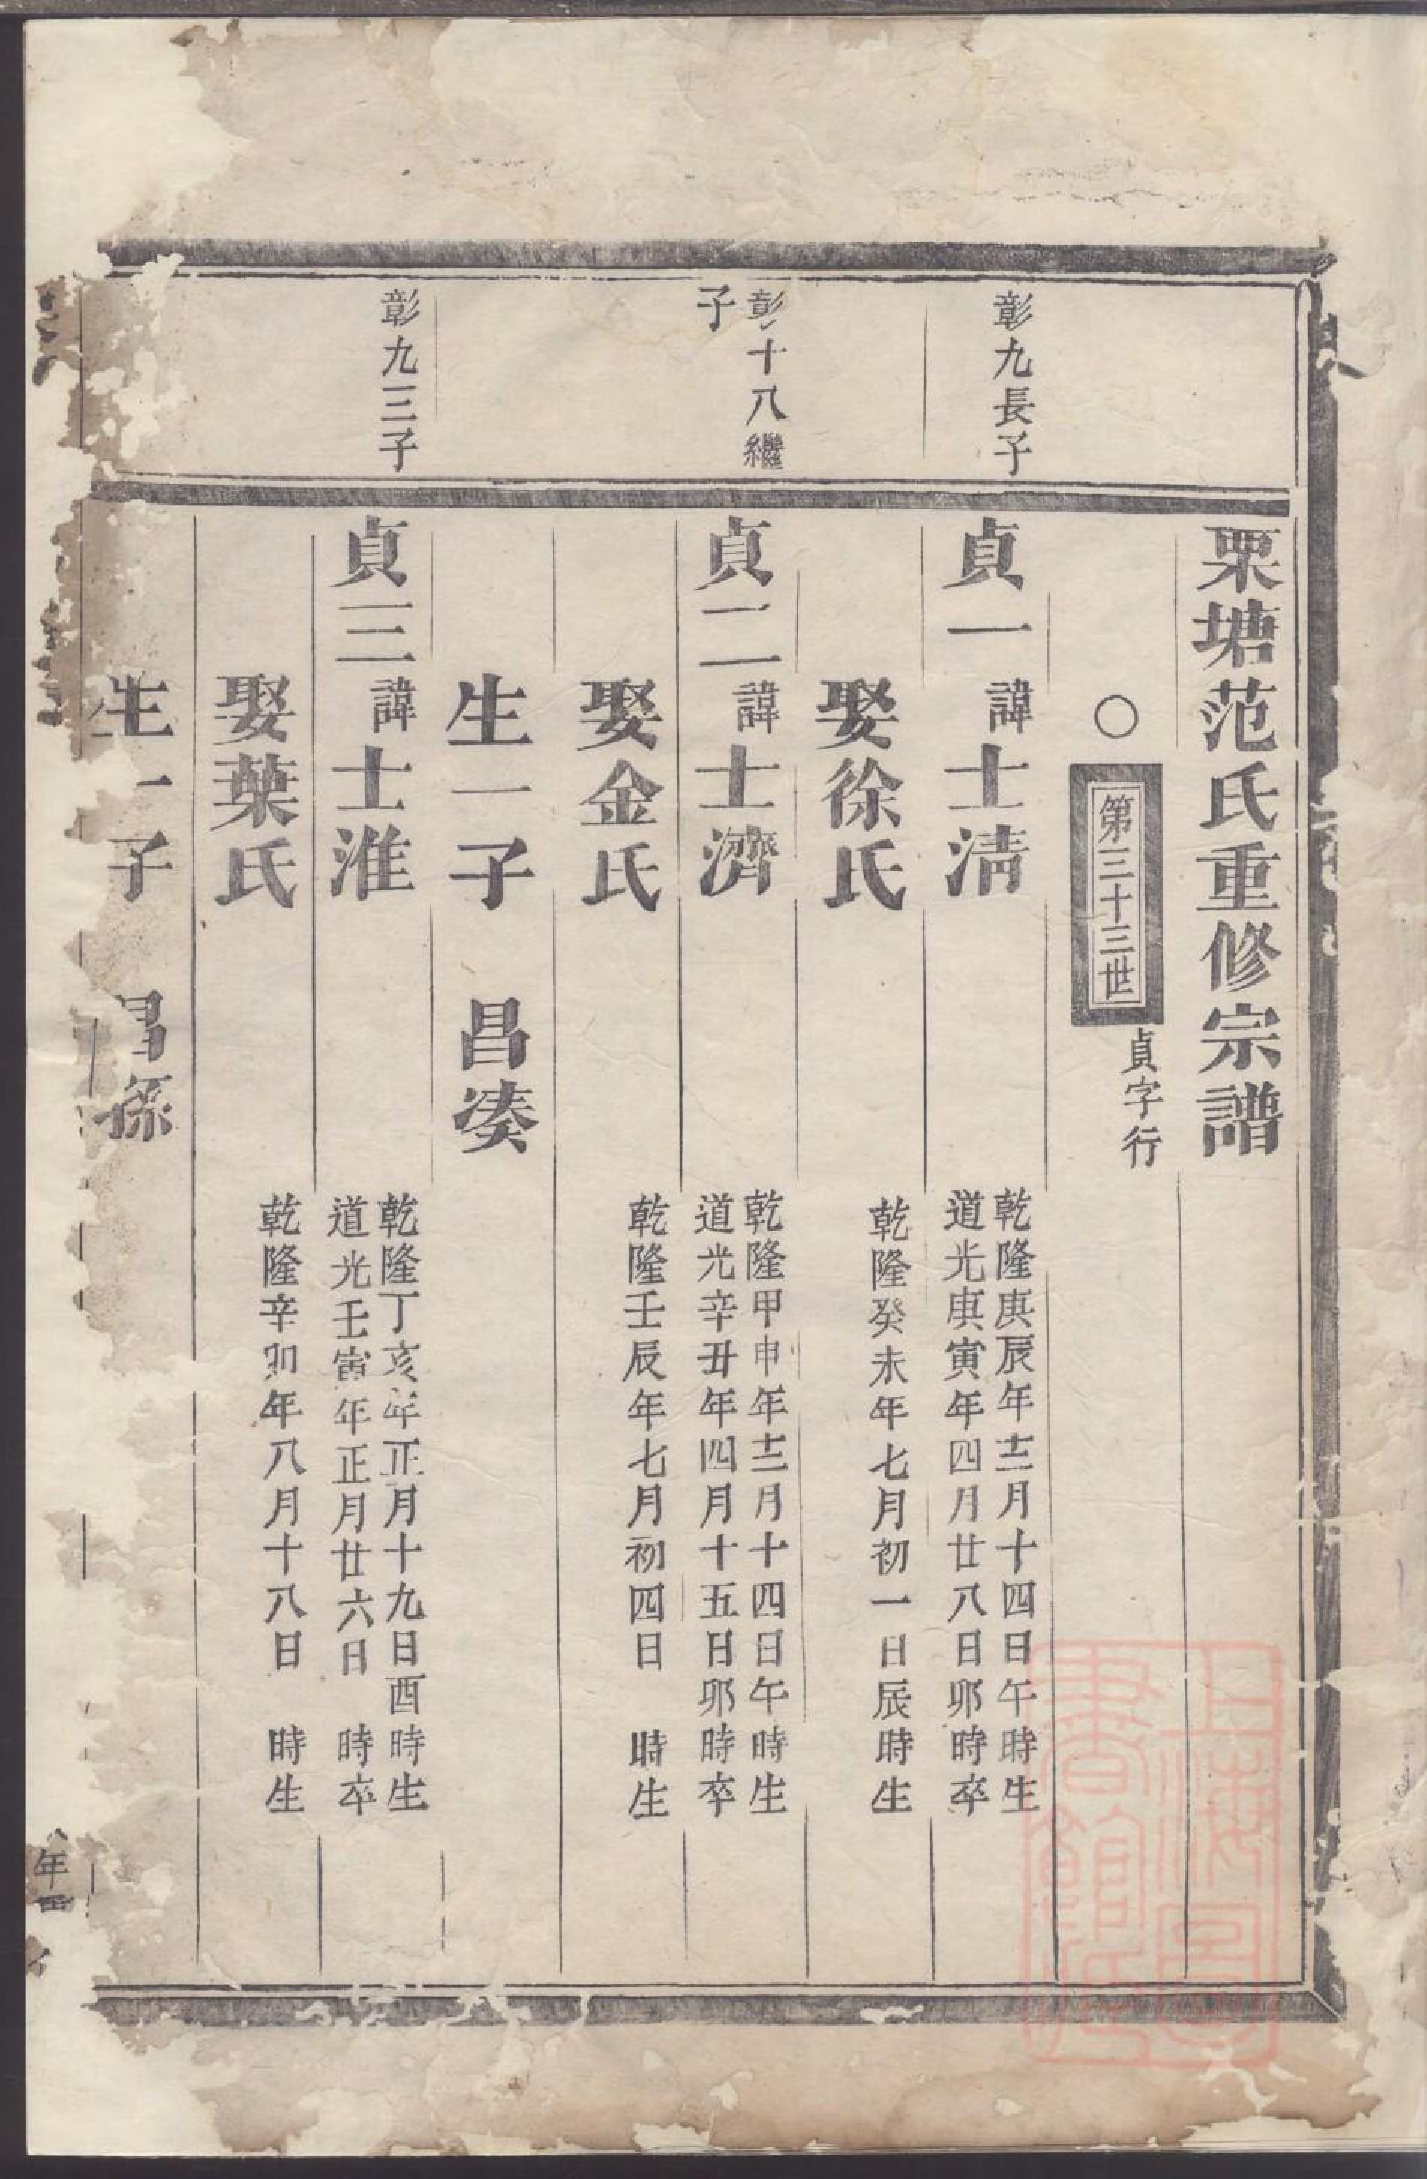 栗塘范氏重修宗譜
○
第三十三世
貞字行
彰九長子
貞一
諱
士淸
乾隆庚辰年十二月十四日午時生
道光庚寅年四月廿八日卯時卒
娶徐氏
乾隆癸未年七月初一日辰時生
彰十八繼
子
貞二
諱
士濟
乾隆甲申年十二月十四日午時生
道光辛丑年四月十五日卯時卒
娶金氏
乾隆壬辰年七月初四日 時生
生一子 昌凑
彰九三子
貞三
諱
士淮
乾隆丁亥年正月十九日酉時生
道光壬寅年正月廿六日 時卒
娶葉氏
乾隆辛卯年八月十八日 時生
生一子 昌孫
年
上海圖
書館藏